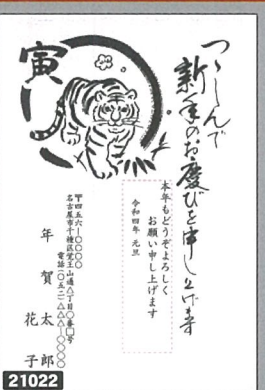 つゝしんで
新年のお慶びを申し上げます
寅
本年もどうぞよろしく
お願い申し上げます
令和四年 元旦
〒四五六―〇〇〇〇
名古屋市千種区覚王山通△丁目〇番〇号
電話〇五二―△△△―〇〇〇〇
年賀太郎
花子
21022